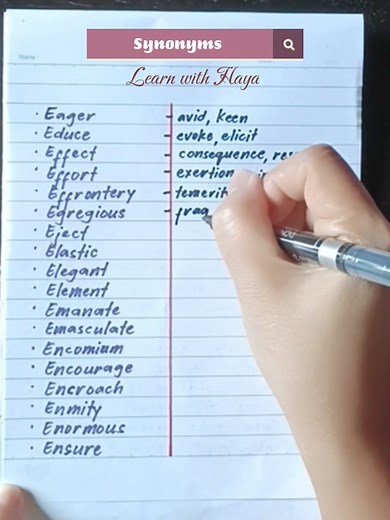 Synonyms
Name:
Learn with Haya
· Eager - avid, keen
· Educe - evoke, elicit
· Effect - consequence,
· Effort - exertion
· Effrontery -
· Egregious -
· Eject
· Elastic
· Elegant
· Element
· Emanate
· Emasculate
· Encomium
· Encourage
· Encroach
· Enmity
· Enormous
· Ensure